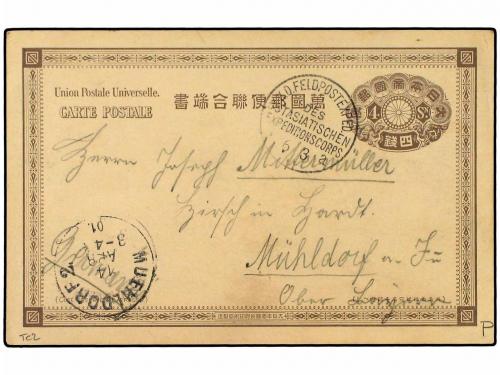 大日本帝國郵便
4 Sn
四錢
Union Postale Universelle.
CARTE POSTALE
書端合聯便郵國萬
K.D. FELDPOSTEXPED.
DES
OSTASIATISCHEN
EXPEDITIONSCORPS
5/3
Herrn Joseph Mittermüller
Hirsch in Hardt.
Mühldorf a. In
Ober Bayern
MUEHLDORF 2
APR
3-4
01
TC2
P